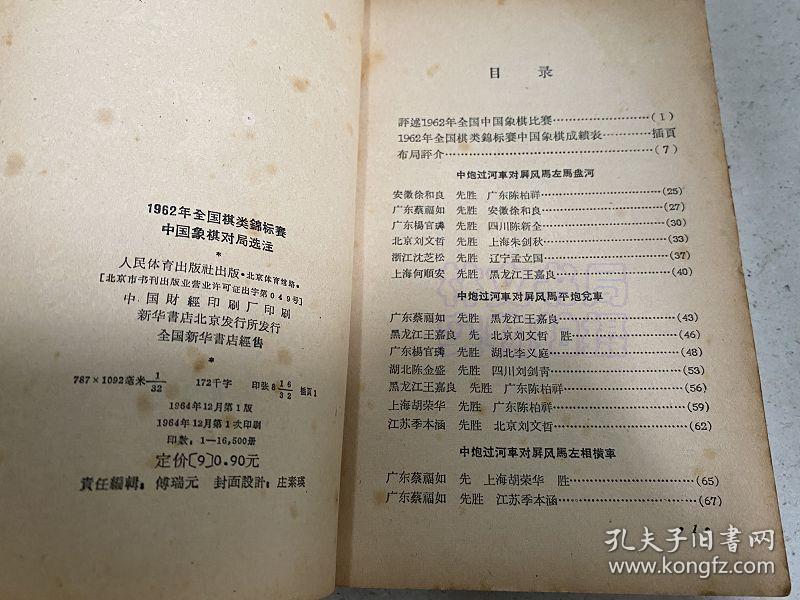 1962年全国棋类錦标賽
中国象棋对局选注
*
人民体育出版社出版·北京体育館路·
〔北京市书刊出版业营业許可证出字第049号〕
中国財經印刷厂印刷
新华書店北京发行所发行
全国新华書店經售
*
787×1092毫米 1/32 172千字 印张8 16/32 插頁1
1964年12月第1版
1964年12月第1次印刷
印数：1—16,500册
定价〔9〕0.90元
責任編輯：傅瑞元 封面設計：庄素瑛
目录
評述1962年全国中国象棋比賽……………(1)
1962年全国棋类錦标賽中国象棋成績表……插頁
布局評介……………(7)
中炮过河車对屏风馬左馬盘河
安徽徐和良 先胜 广东陈柏祥……………(25)
广东蔡福如 先胜 安徽徐和良……………(27)
广东楊官璘 先胜 四川陈新全……………(30)
北京刘文哲 先胜 上海朱剑秋……………(33)
浙江沈芝松 先胜 辽宁孟立国……………(37)
上海何順安 先胜 黑龙江王嘉良……………(40)
中炮过河車对屏风馬平炮兌車
广东蔡福如 先胜 黑龙江王嘉良……………(43)
黑龙江王嘉良 先 北京刘文哲 胜……………(46)
广东楊官璘 先胜 湖北李义庭……………(48)
湖北陈金盛 先胜 四川刘剑青……………(53)
黑龙江王嘉良 先胜 广东陈柏祥……………(56)
上海胡荣华 先胜 广东陈柏祥……………(59)
江苏季本涵 先胜 北京刘文哲……………(62)
中炮过河車对屏风馬左相横車
广东蔡福如 先 上海胡荣华 胜……………(65)
广东蔡福如 先胜 江苏季本涵……………(67)
·1·
孔夫子旧书网
kongfz.com